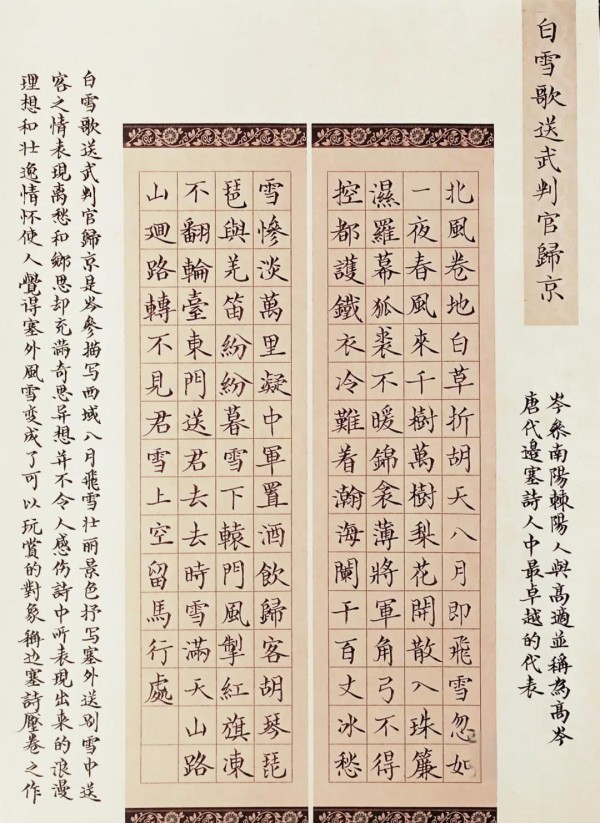 白雪歌送武判官歸京
岑參南陽棘陽人與高適並稱為高岑
唐代邊塞詩人中最卓越的代表
北風卷地白草折胡天八月即飛雪忽如
一夜春風來千樹萬樹梨花開散入珠簾
濕羅幕狐裘不暖錦衾薄將軍角弓不得
控都護鐵衣冷難着瀚海闌干百丈冰愁
雪慘淡萬里凝中軍置酒飲歸客胡琴琵
琶與羌笛紛紛暮雪下轅門風掣紅旗凍
不翻輪臺東門送君去去時雪滿天山路
山廻路轉不見君雪上空留馬行處
白雪歌送武判官歸京是岑參描写西域八月飛雪壮丽景色抒写塞外送别雪中送
客之情表現离愁和鄉思却充滿奇思异想并不令人感伤詩中所表現出来的浪漫
理想和壮逸情怀使人覺得塞外風雪变成了可以玩賞的對象稱边塞詩壓卷之作